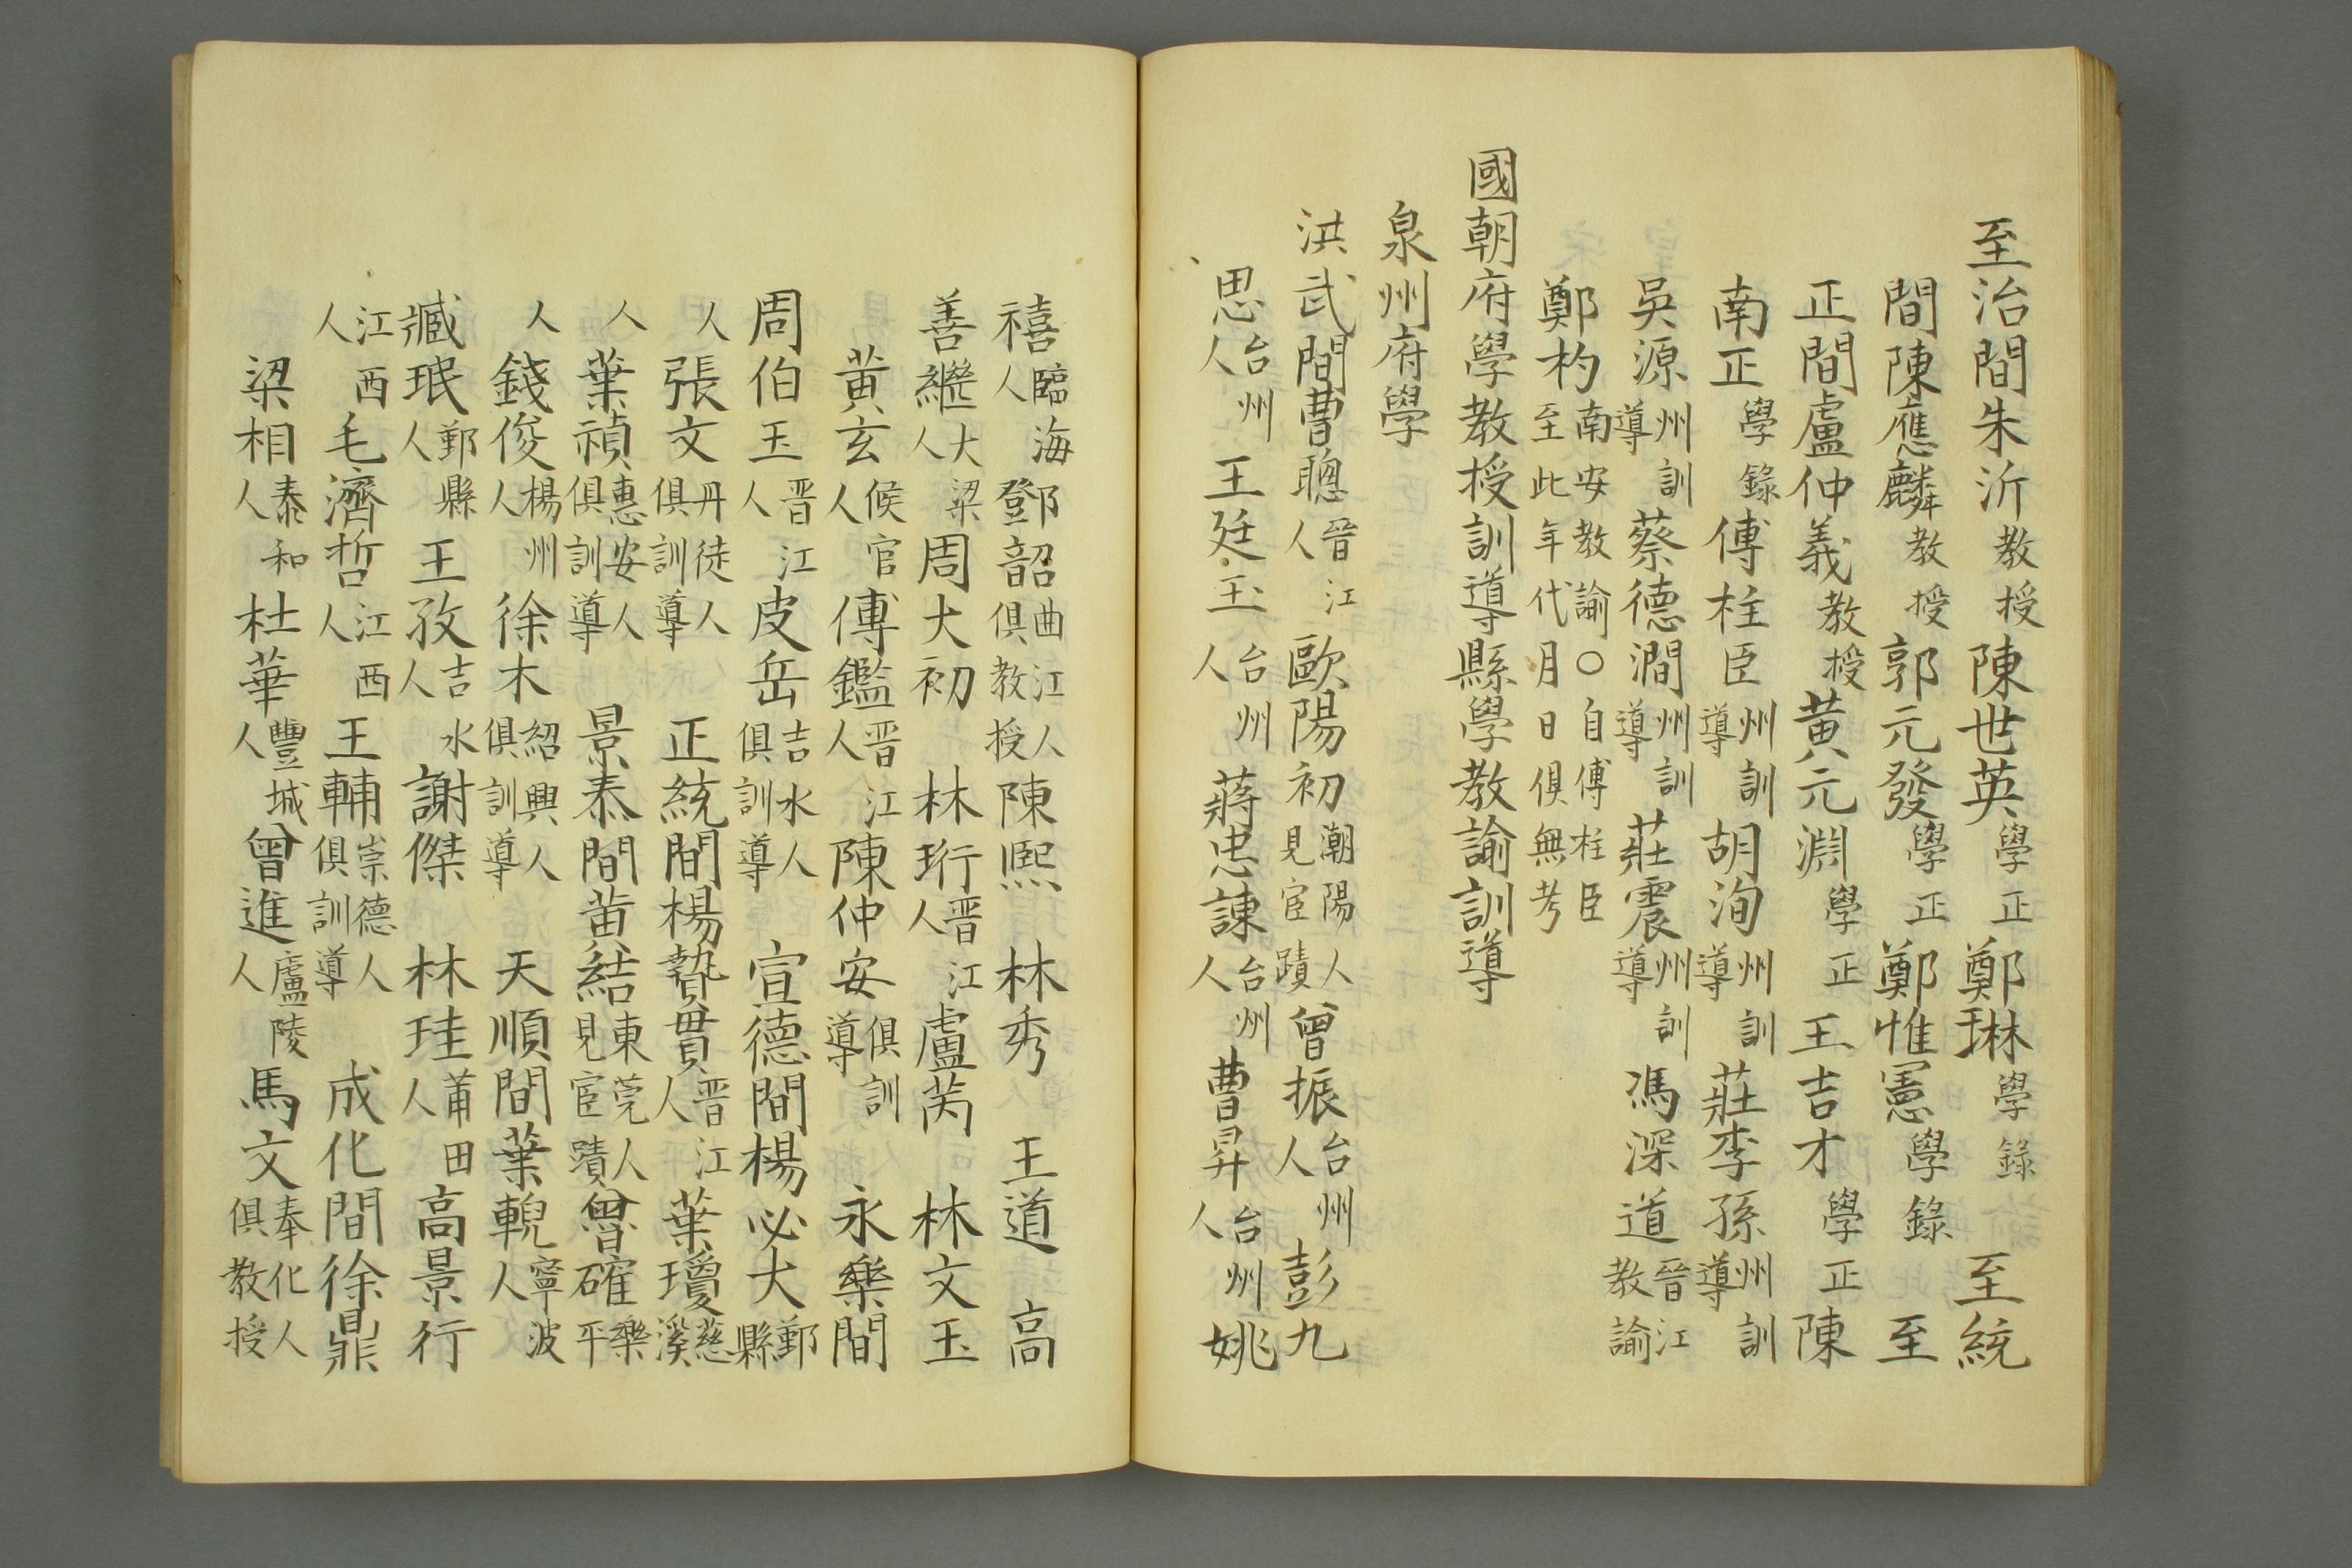 至治間朱沂教授陳世英學正鄭琳學錄　至統
間陳應麟教授郭元發學正鄭惟憲學錄　至
正間盧仲義教授黃元淵學正王吉才學正陳
南正學錄傅柱臣州訓導胡洵州訓導莊李孫州訓導
吳源州訓導蔡德澗州訓導莊震州訓導馮深道晉江教諭
鄭杓南安教諭〇自傅柱臣至此年代月日俱無考
國朝府學教授訓導縣學教諭訓導
泉州府學
洪武間曹聰晉江人歐陽初潮陽人見宦蹟曾振台州人彭九
思台州人王廷玉台州人蔣忠諫台州人曹昇台州人姚
禧臨海人鄧韶曲江人俱教授陳熙　林秀　王道　高
善繼大梁人周大初　林珩晋江人盧芮　林文玉
黃玄候官人傅鑑晋江人陳仲安俱訓導　永樂間
周伯玉晋江人皮岳吉水人俱訓導　宣德間楊必大鄞縣
人張文丹徒人俱訓導　正統間楊贄貫晋江人葉瓊慈溪
人葉禎惠安人俱訓導　景泰間黃結東莞人見宦蹟曾確樂平
人錢俊楊州人徐木紹興人俱訓導　天順間葉輗寧波人
臧珉鄞縣人王孜吉水人謝傑　林珪莆田人高景行
江西人毛濟哲江西人王輔崇德人俱訓導　成化間徐鼎
梁相泰和人杜華豐城人曾進盧陵人馬文奉化人俱教授